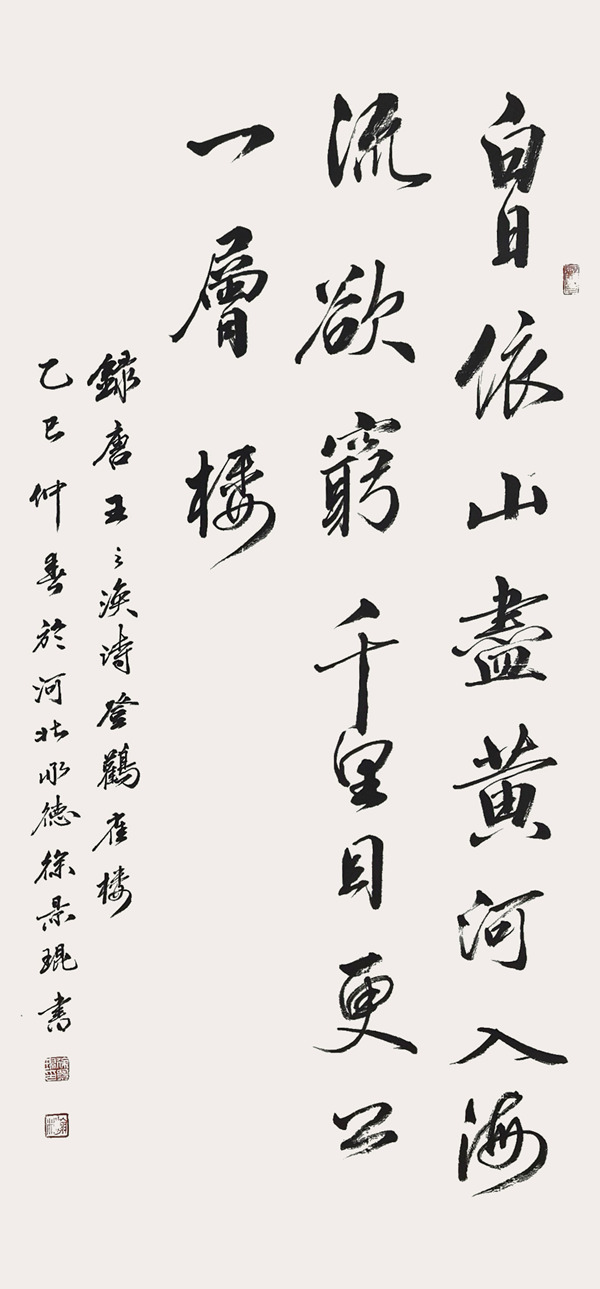 白日依山盡黄河入海
流欲窮千里目更上
一層樓
録唐王之渙詩登鸛雀樓
乙巳仲春於河北承德徐景琨書